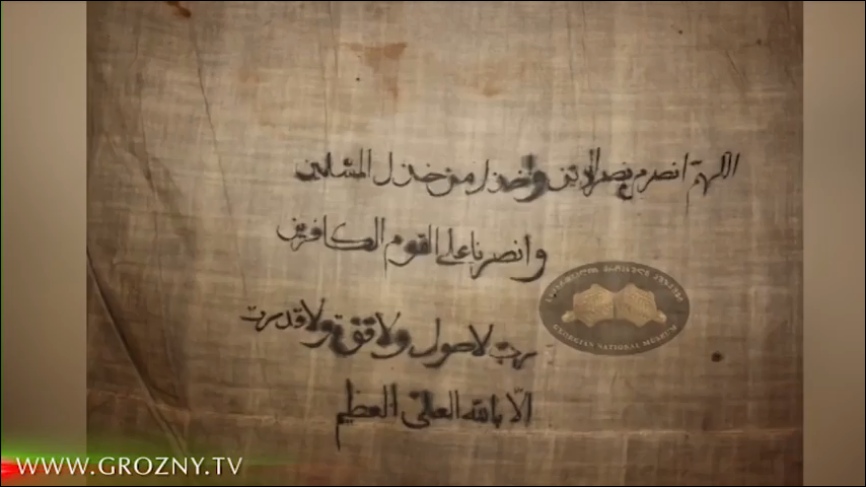 اللهم انصر من نصر الدين واخذل من خذل المسلمين
وانصرنا على القوم الكافرين
لا حول ولا قوة ولا قدرت
الّا بالله العلىّ العظيم
GEORGIAN NATIONAL MUSEUM
WWW.GROZNY.TV